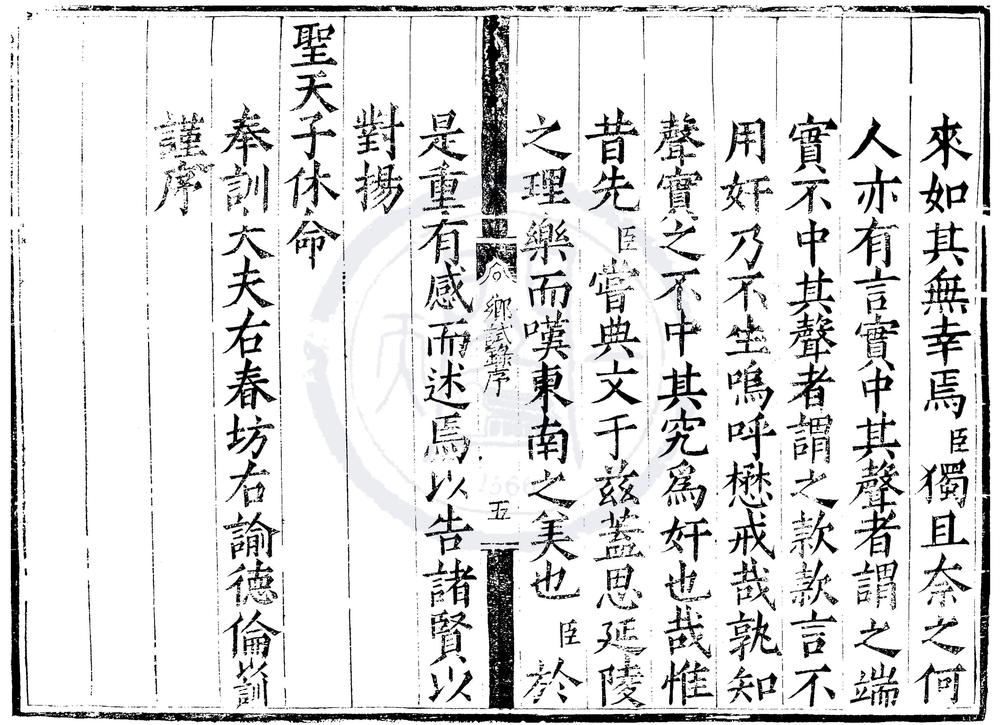 來如其無幸焉臣獨且奈之何
人亦有言實中其聲者謂之端
實不中其聲者謂之款款言不
用奸乃不生嗚呼懋戒哉孰知
聲實之不中其究爲奸也哉惟
昔先臣嘗典文于兹蓋思延陵
之理樂而嘆東南之美也臣於
鄉試錄序
五
是重有感而述焉以告諸賢以
對揚
聖天子休命
奉訓大夫右春坊右諭德倫以訓
謹序